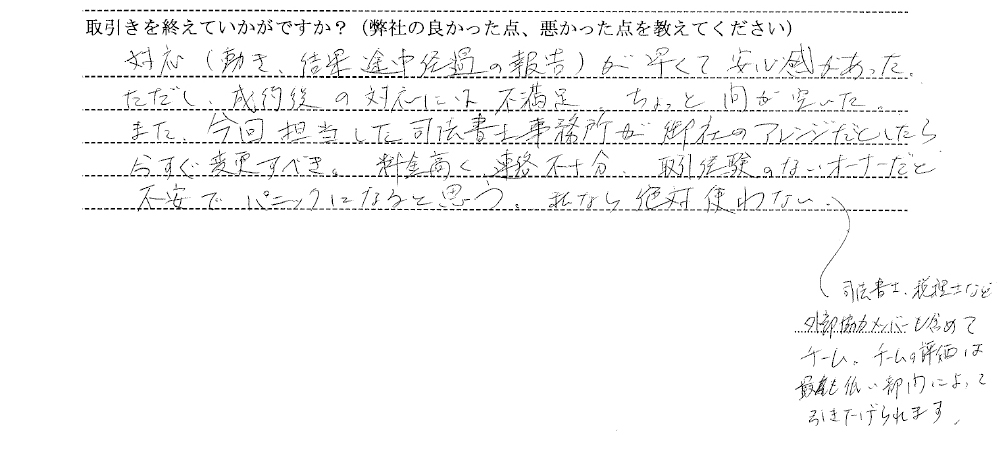 取引きを終えていかがですか?(弊社の良かった点、悪かった点を教えてください)
対応(動き、結果途中経過の報告)が早くて安心感があった。
ただし、成約後の対応には不満足。ちょっと間が空いた。
また、今回担当した司法書士事務所が御社のアレンジだとしたら
今すぐ変更すべき。料金高く、連絡不十分、取引経験のないオーナーだと
不安でパニックになると思う。私なら絶対使わない。
司法書士、税理士など
外部協力メンバーも含めて
チーム。チームの評価は
最も低い部門によって
引き下げられます。